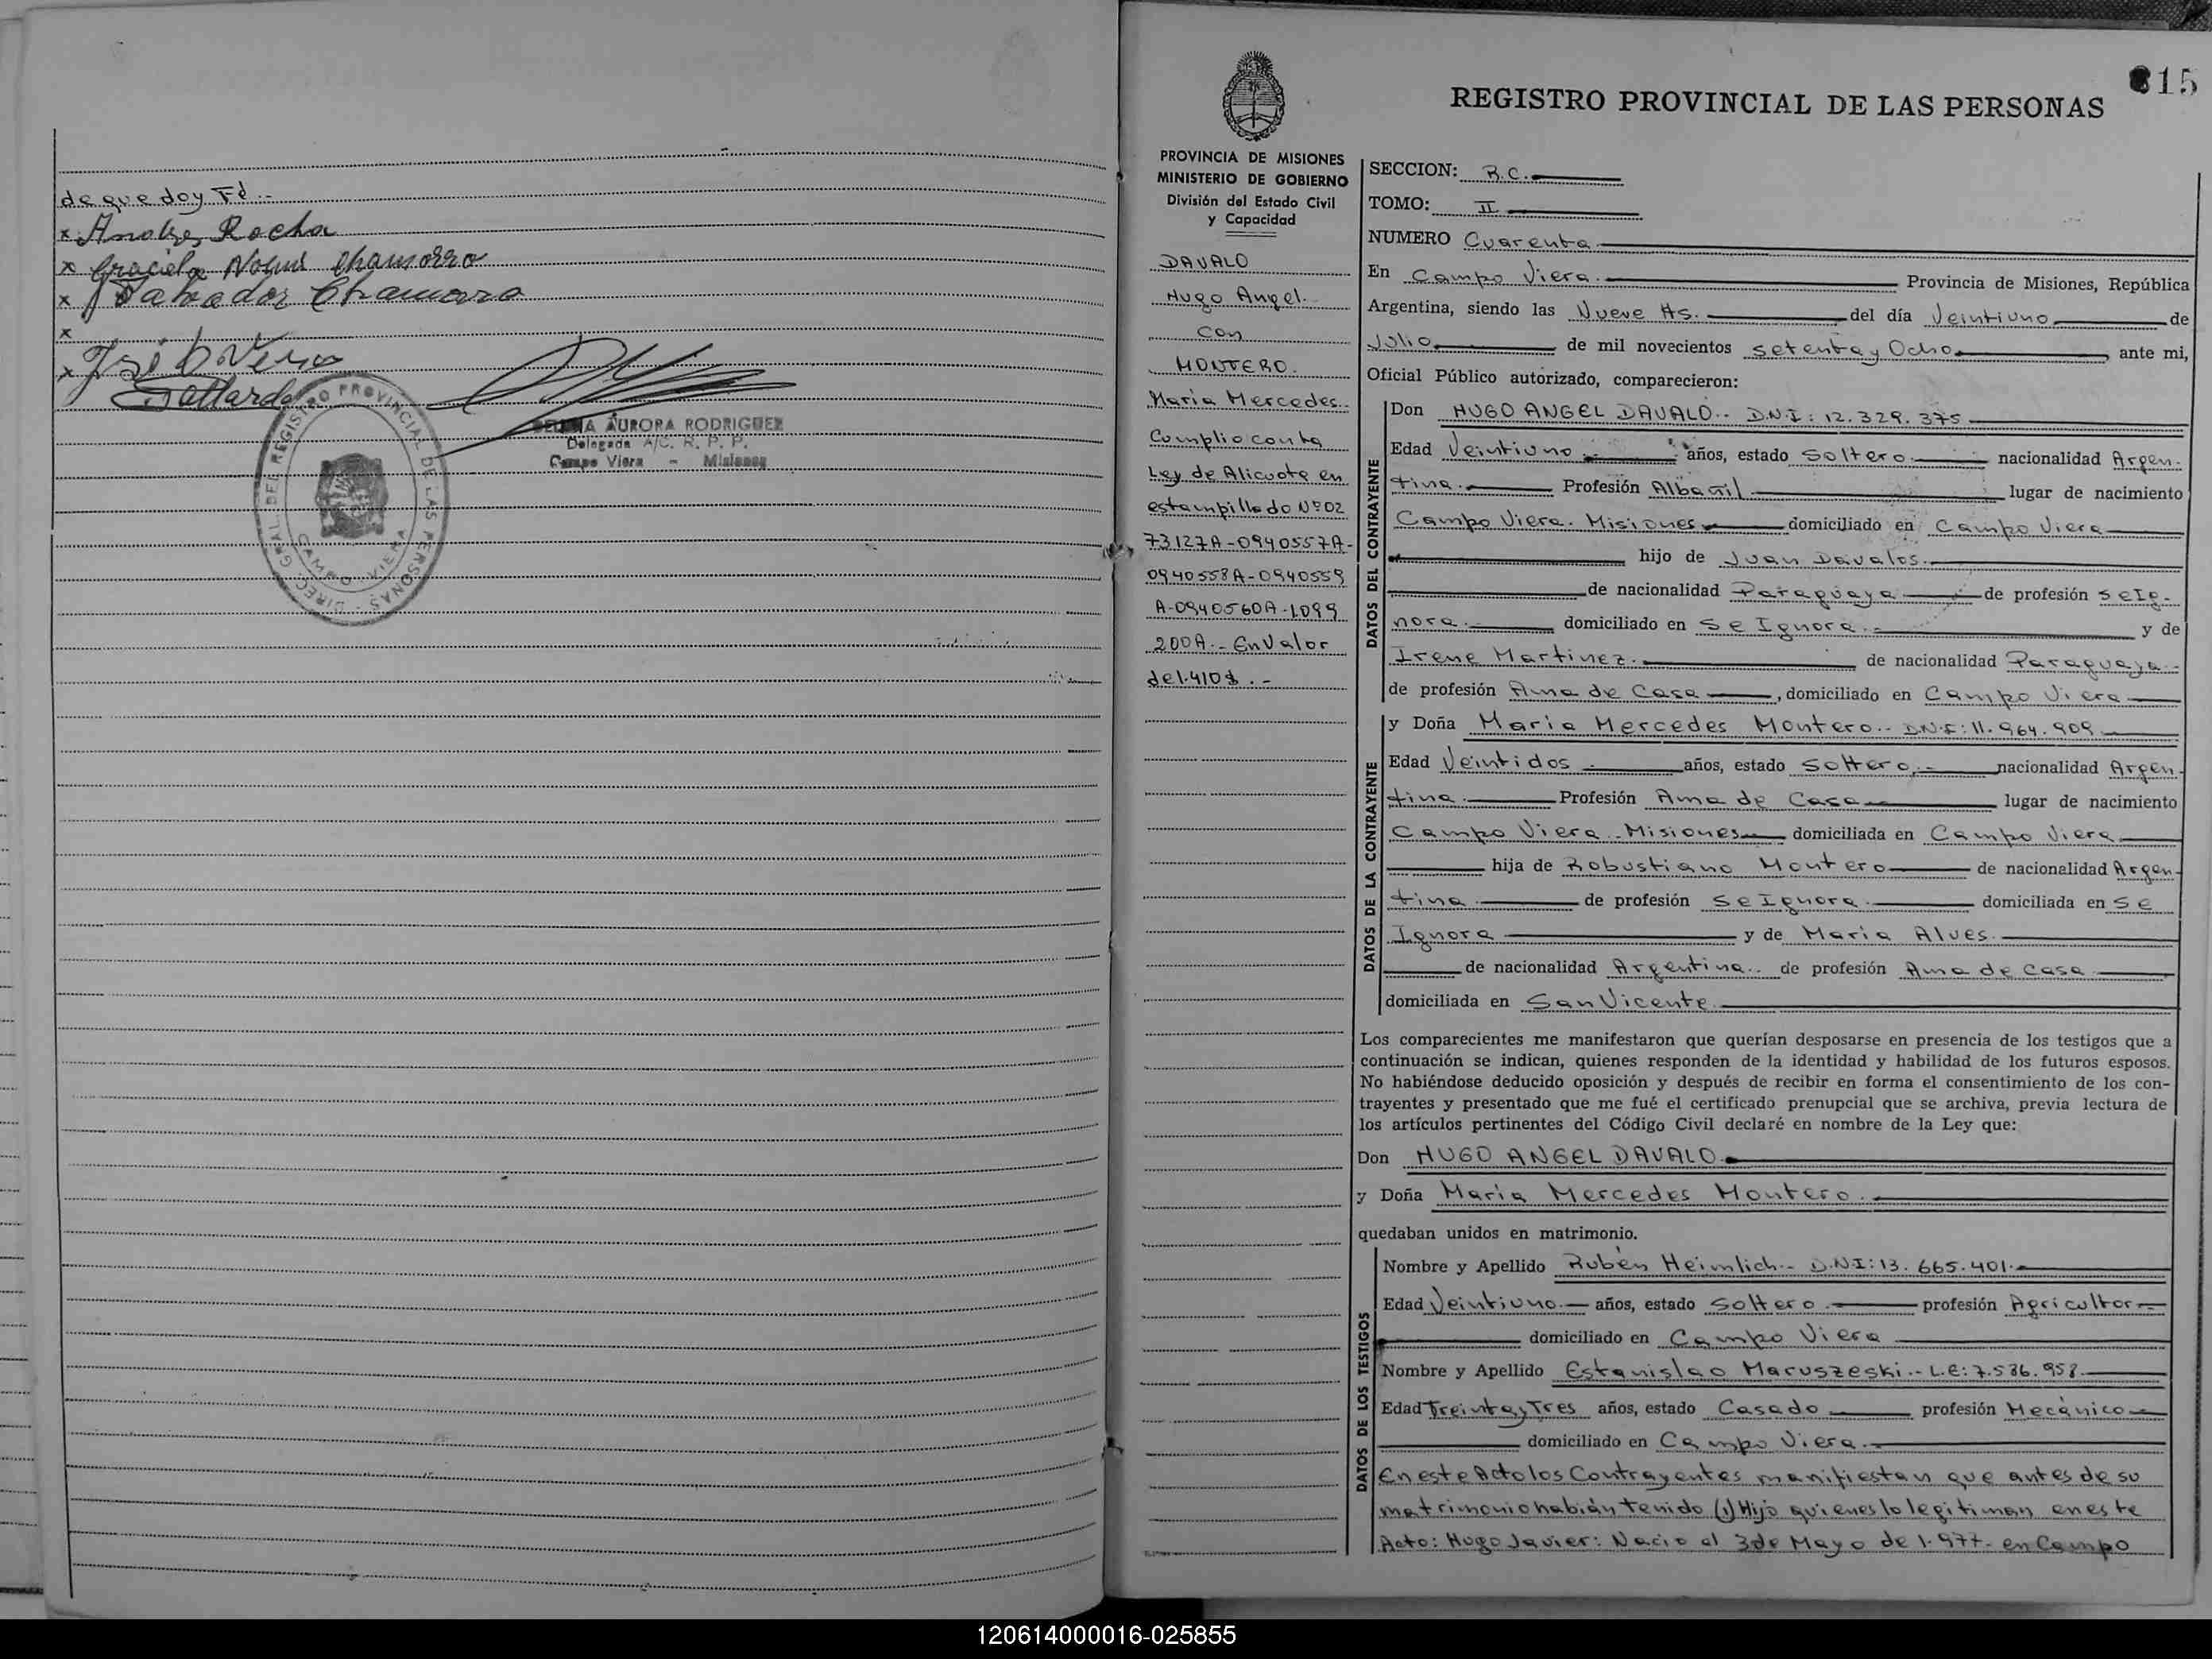 de que doy Fé.-
x Andres Rocha
x Graciela Noemi Chamorro
x Salvador Chamorro
x
x José Vera
Gallardo
AURORA RODRIGUEZ
Delegada A/C. R. P. P.
Campo Viera - Misiones
DIREC. GRAL. DEL REGISTRO PROVINCIAL DE LAS PERSONAS
CAMPO VIERA
815
REGISTRO PROVINCIAL DE LAS PERSONAS
PROVINCIA DE MISIONES
MINISTERIO DE GOBIERNO
División del Estado Civil
y Capacidad
DAVALO
Hugo Angel.
con
MONTERO.
Maria Mercedes.-
Cumplio con la
Ley de Alicuota en
estampillado Nº 02
73127A-0940557A-
0940558A-0940559
A-0940560A-1099
200A.- En Valor
de 1.410$.-
SECCION: R.C.
TOMO: II
NUMERO Cuarenta
En Campo Viera. Provincia de Misiones, República
Argentina, siendo las Nueve Hs. del día Veintiuno de
Julio de mil novecientos setenta y Ocho ante mi,
Oficial Público autorizado, comparecieron:
DATOS DEL CONTRAYENTE
Don HUGO ANGEL DAVALO.- D.N.I: 12.329.375
Edad Veintiuno años, estado Soltero. nacionalidad Argen-
tina. Profesión Albañil lugar de nacimiento
Campo Viera. Misiones domiciliado en Campo Viera
hijo de Juan Davalos.
de nacionalidad Paraguaya de profesión se Ig-
nora. domiciliado en Se Ignora.- y de
Irene Martinez. de nacionalidad Paraguaya.-
de profesión Ama de Casa, domiciliado en Campo Viera
DATOS DE LA CONTRAYENTE
y Doña Maria Mercedes Montero.- D.N.I: 11.964.909
Edad Veintidos años, estado Soltero.- nacionalidad Argen-
tina. Profesión Ama de Casa lugar de nacimiento
Campo Viera - Misiones domiciliada en Campo Viera
hija de Robustiano Montero de nacionalidad Argen-
tina. de profesión Se Ignora. domiciliada en Se
Ignora y de Maria Alves.
de nacionalidad Argentina.. de profesión Ama de casa
domiciliada en San Vicente.
Los comparecientes me manifestaron que querían desposarse en presencia de los testigos que a
continuación se indican, quienes responden de la identidad y habilidad de los futuros esposos.
No habiéndose deducido oposición y después de recibir en forma el consentimiento de los con-
trayentes y presentado que me fué el certificado prenupcial que se archiva, previa lectura de
los artículos pertinentes del Código Civil declaré en nombre de la Ley que:
Don HUGO ANGEL DAVALO.
y Doña Maria Mercedes Montero.
quedaban unidos en matrimonio.
DATOS DE LOS TESTIGOS
Nombre y Apellido Rubén Heimlich.- D.N.I: 13.665.401.
Edad Veintiuno.- años, estado Soltero. profesión Agricultor
domiciliado en Campo Viera
Nombre y Apellido Estanislao Maruszeski.- L.E: 7.586.958.
Edad Treinta y Tres años, estado Casado profesión Mecánico
domiciliado en Campo Viera.
En este Acto los Contrayentes manifiestan que antes de su
matrimonio habián tenido (1) Hijo quienes lo legitiman en este
Acto: Hugo Javier: Nacio el 3 de Mayo de 1.977- en Campo
120614000016-025855